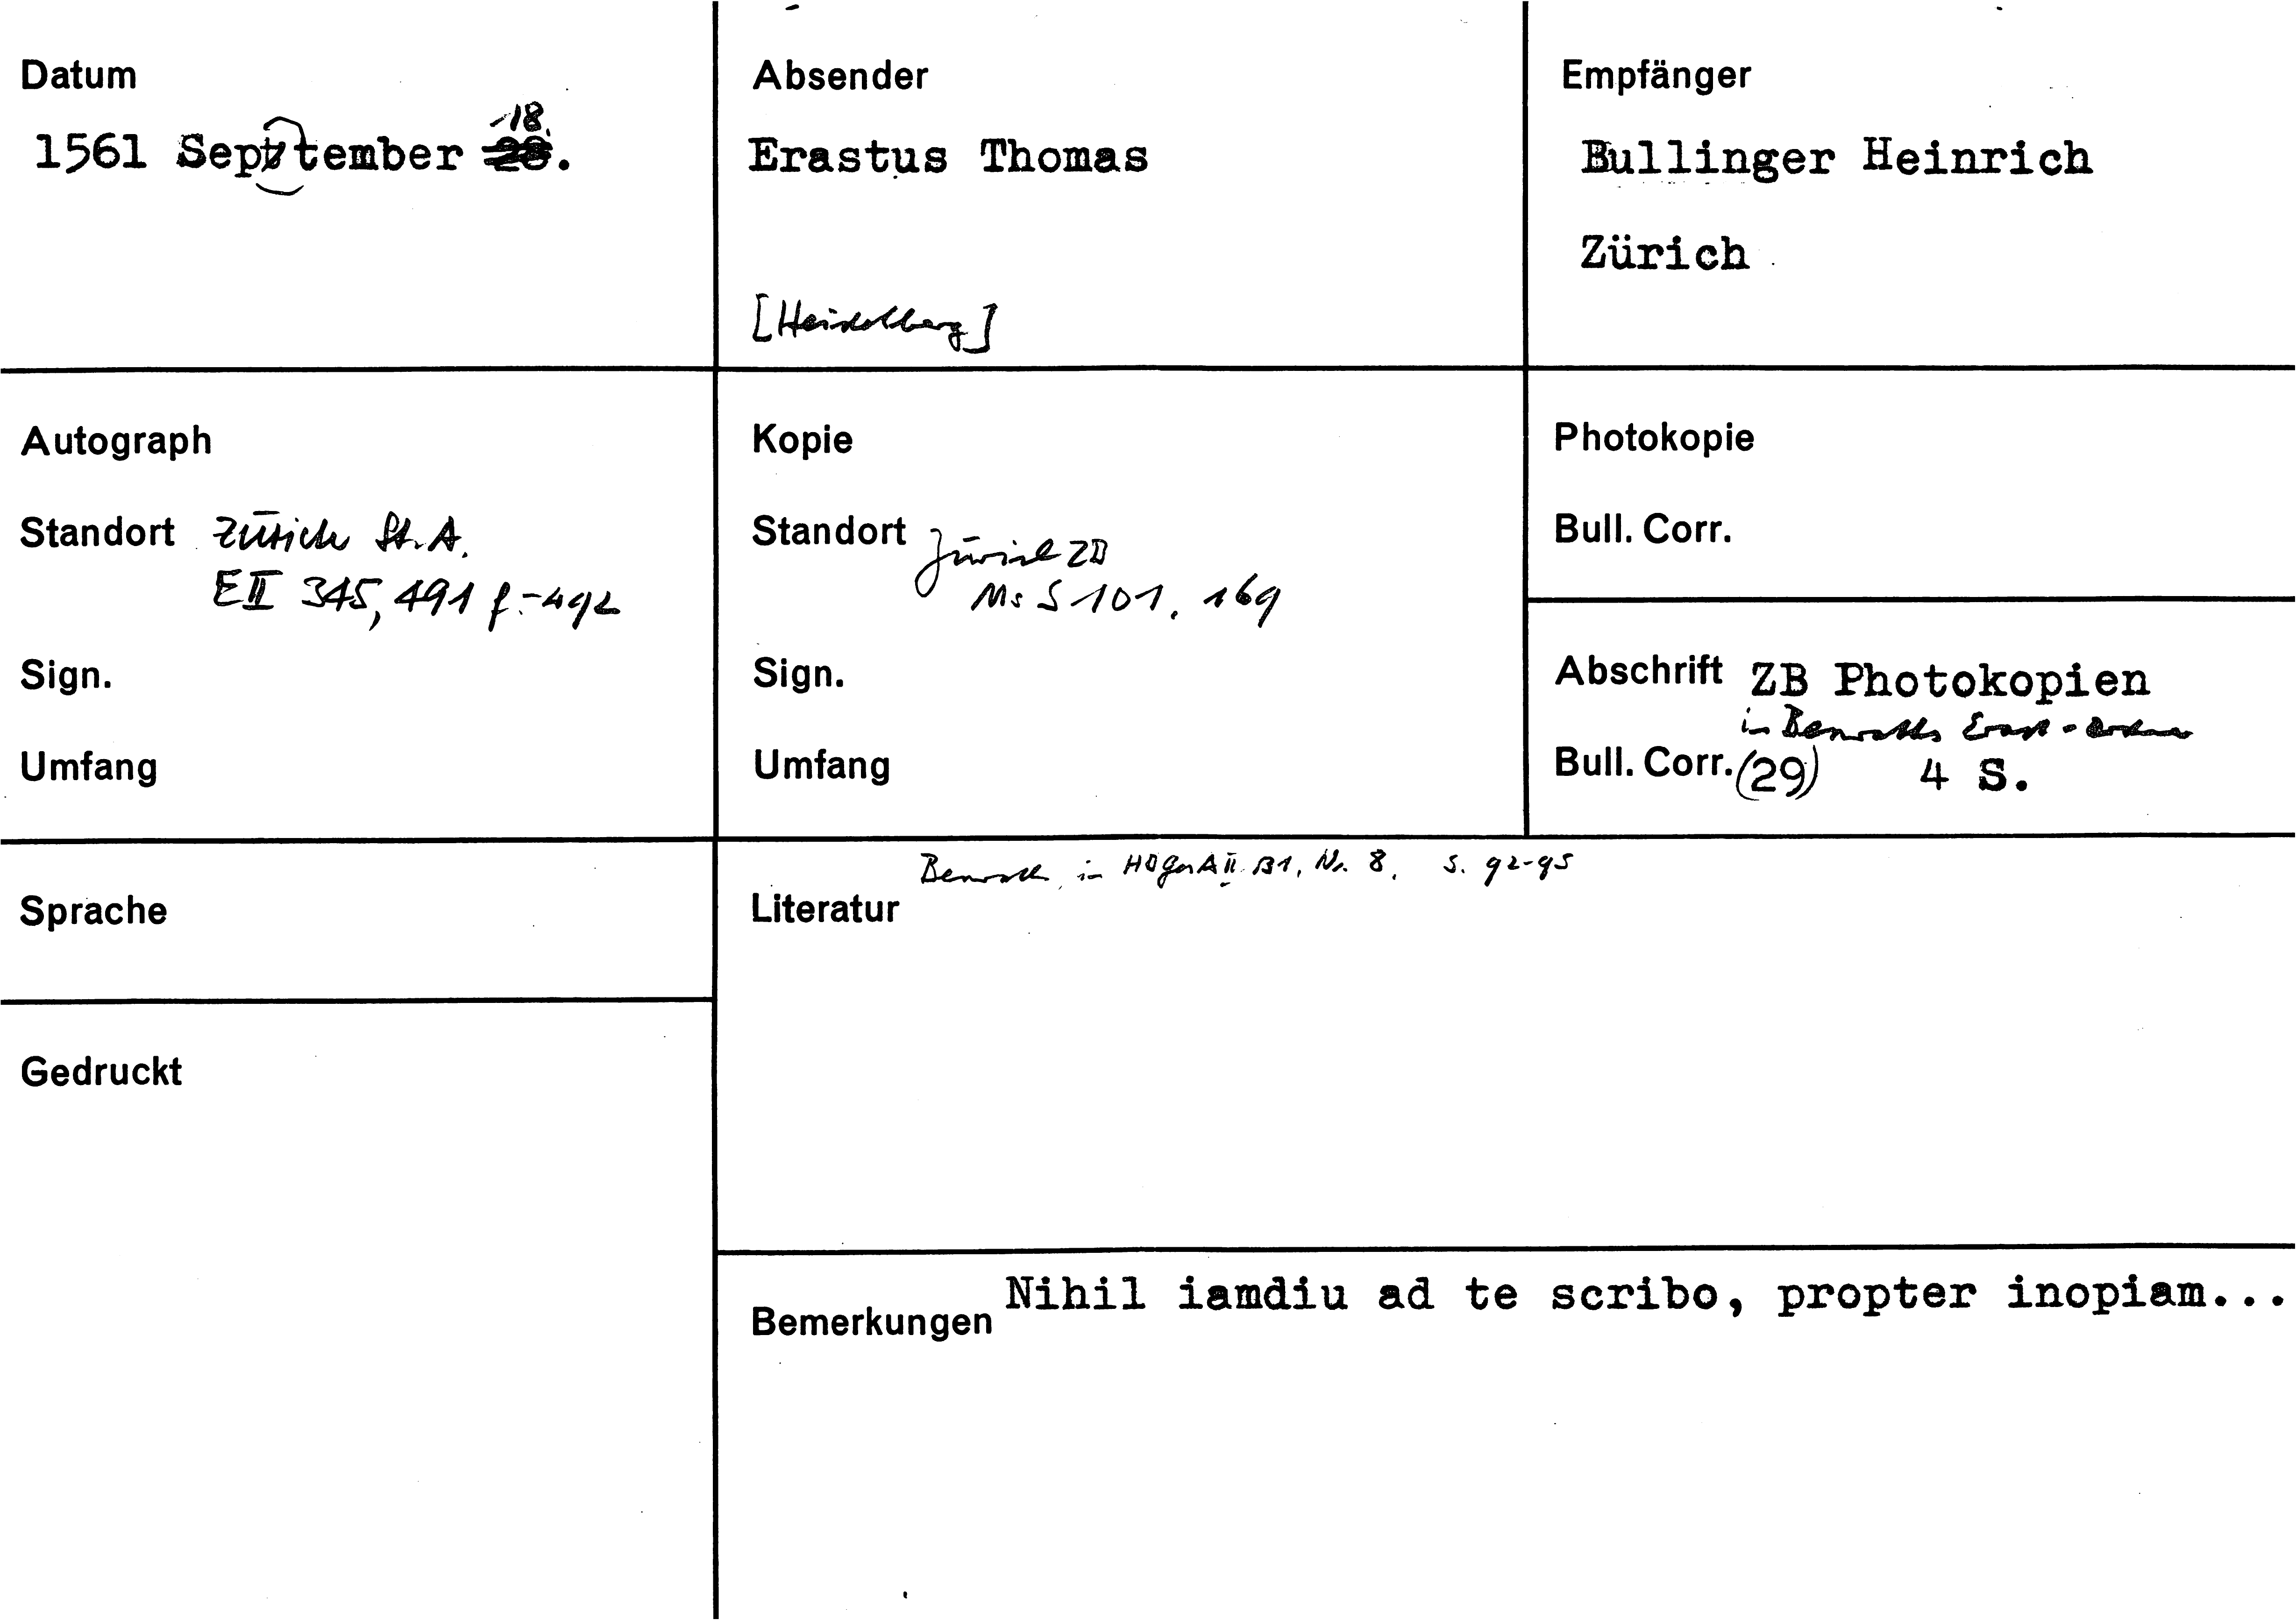 Datum
1561 September 18.
Absender
Erastus Thomas
[Heidelberg]
Empfänger
Bullinger Heinrich
Zürich
Autograph
Standort Zürich St.A.
E II 345, 491 f.-492
Sign.
Umfang
Kopie
Standort Zürich ZB
Ms S 101, 169
Sign.
Umfang
Photokopie
Bull. Corr.
Abschrift ZB Photokopien
in Benraths
Bull. Corr. (29) 4 S.
Sprache
Gedruckt
Benrath, in II B1, Nr. 8, S. 92-95
Literatur
Bemerkungen Nihil iamdiu ad te scribo, propter inopiam...